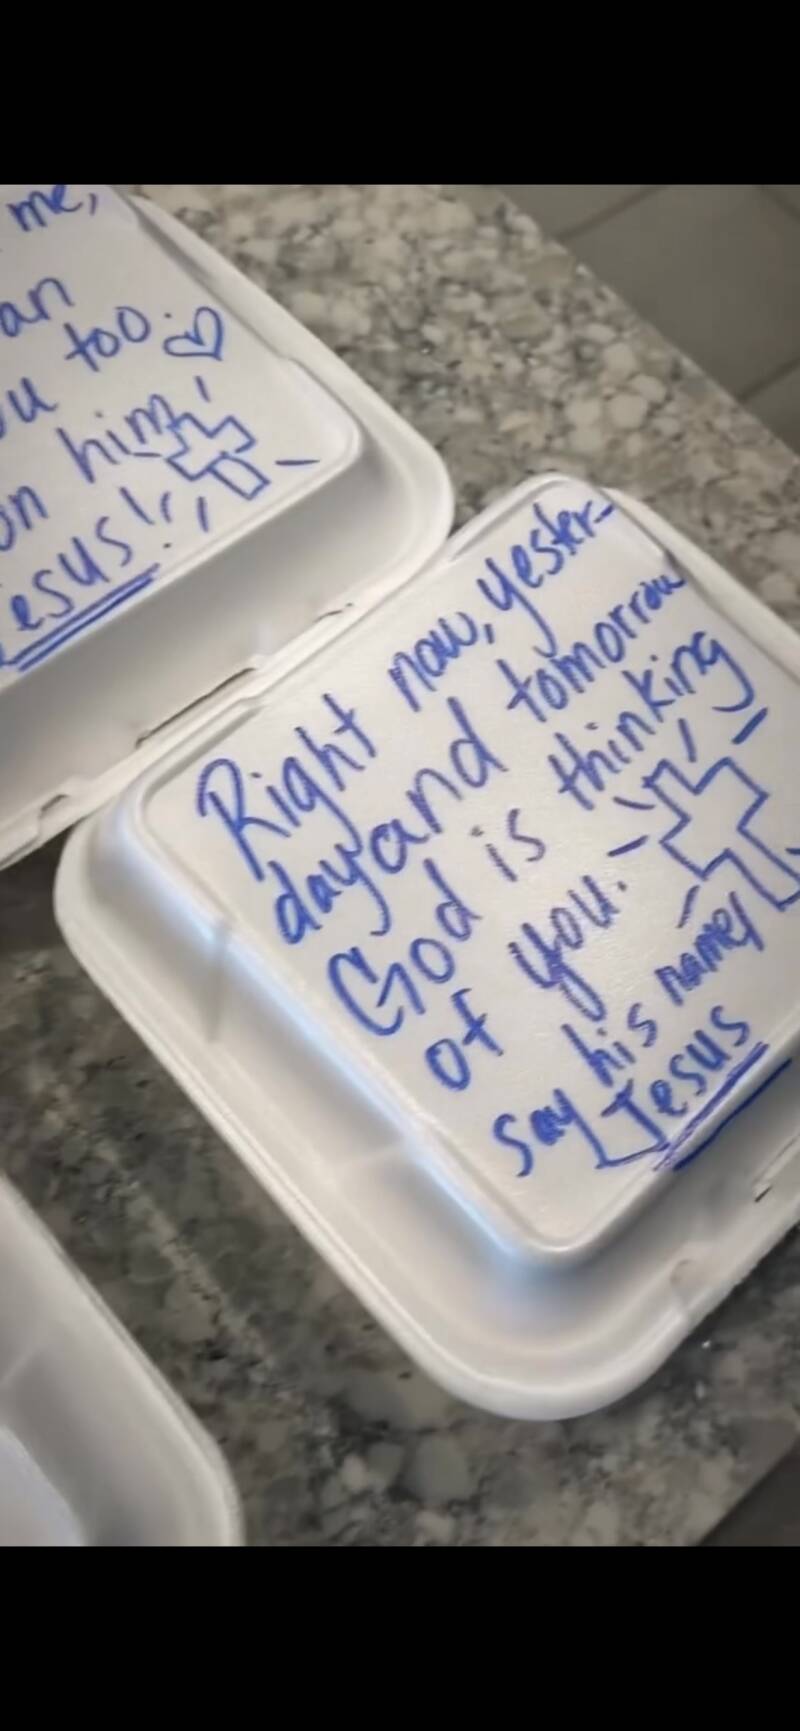 me,
an
ou too.
on him
esus!
Right now, yester-
day and tomorrow
God is thinking
of you.
say his name,
Jesus